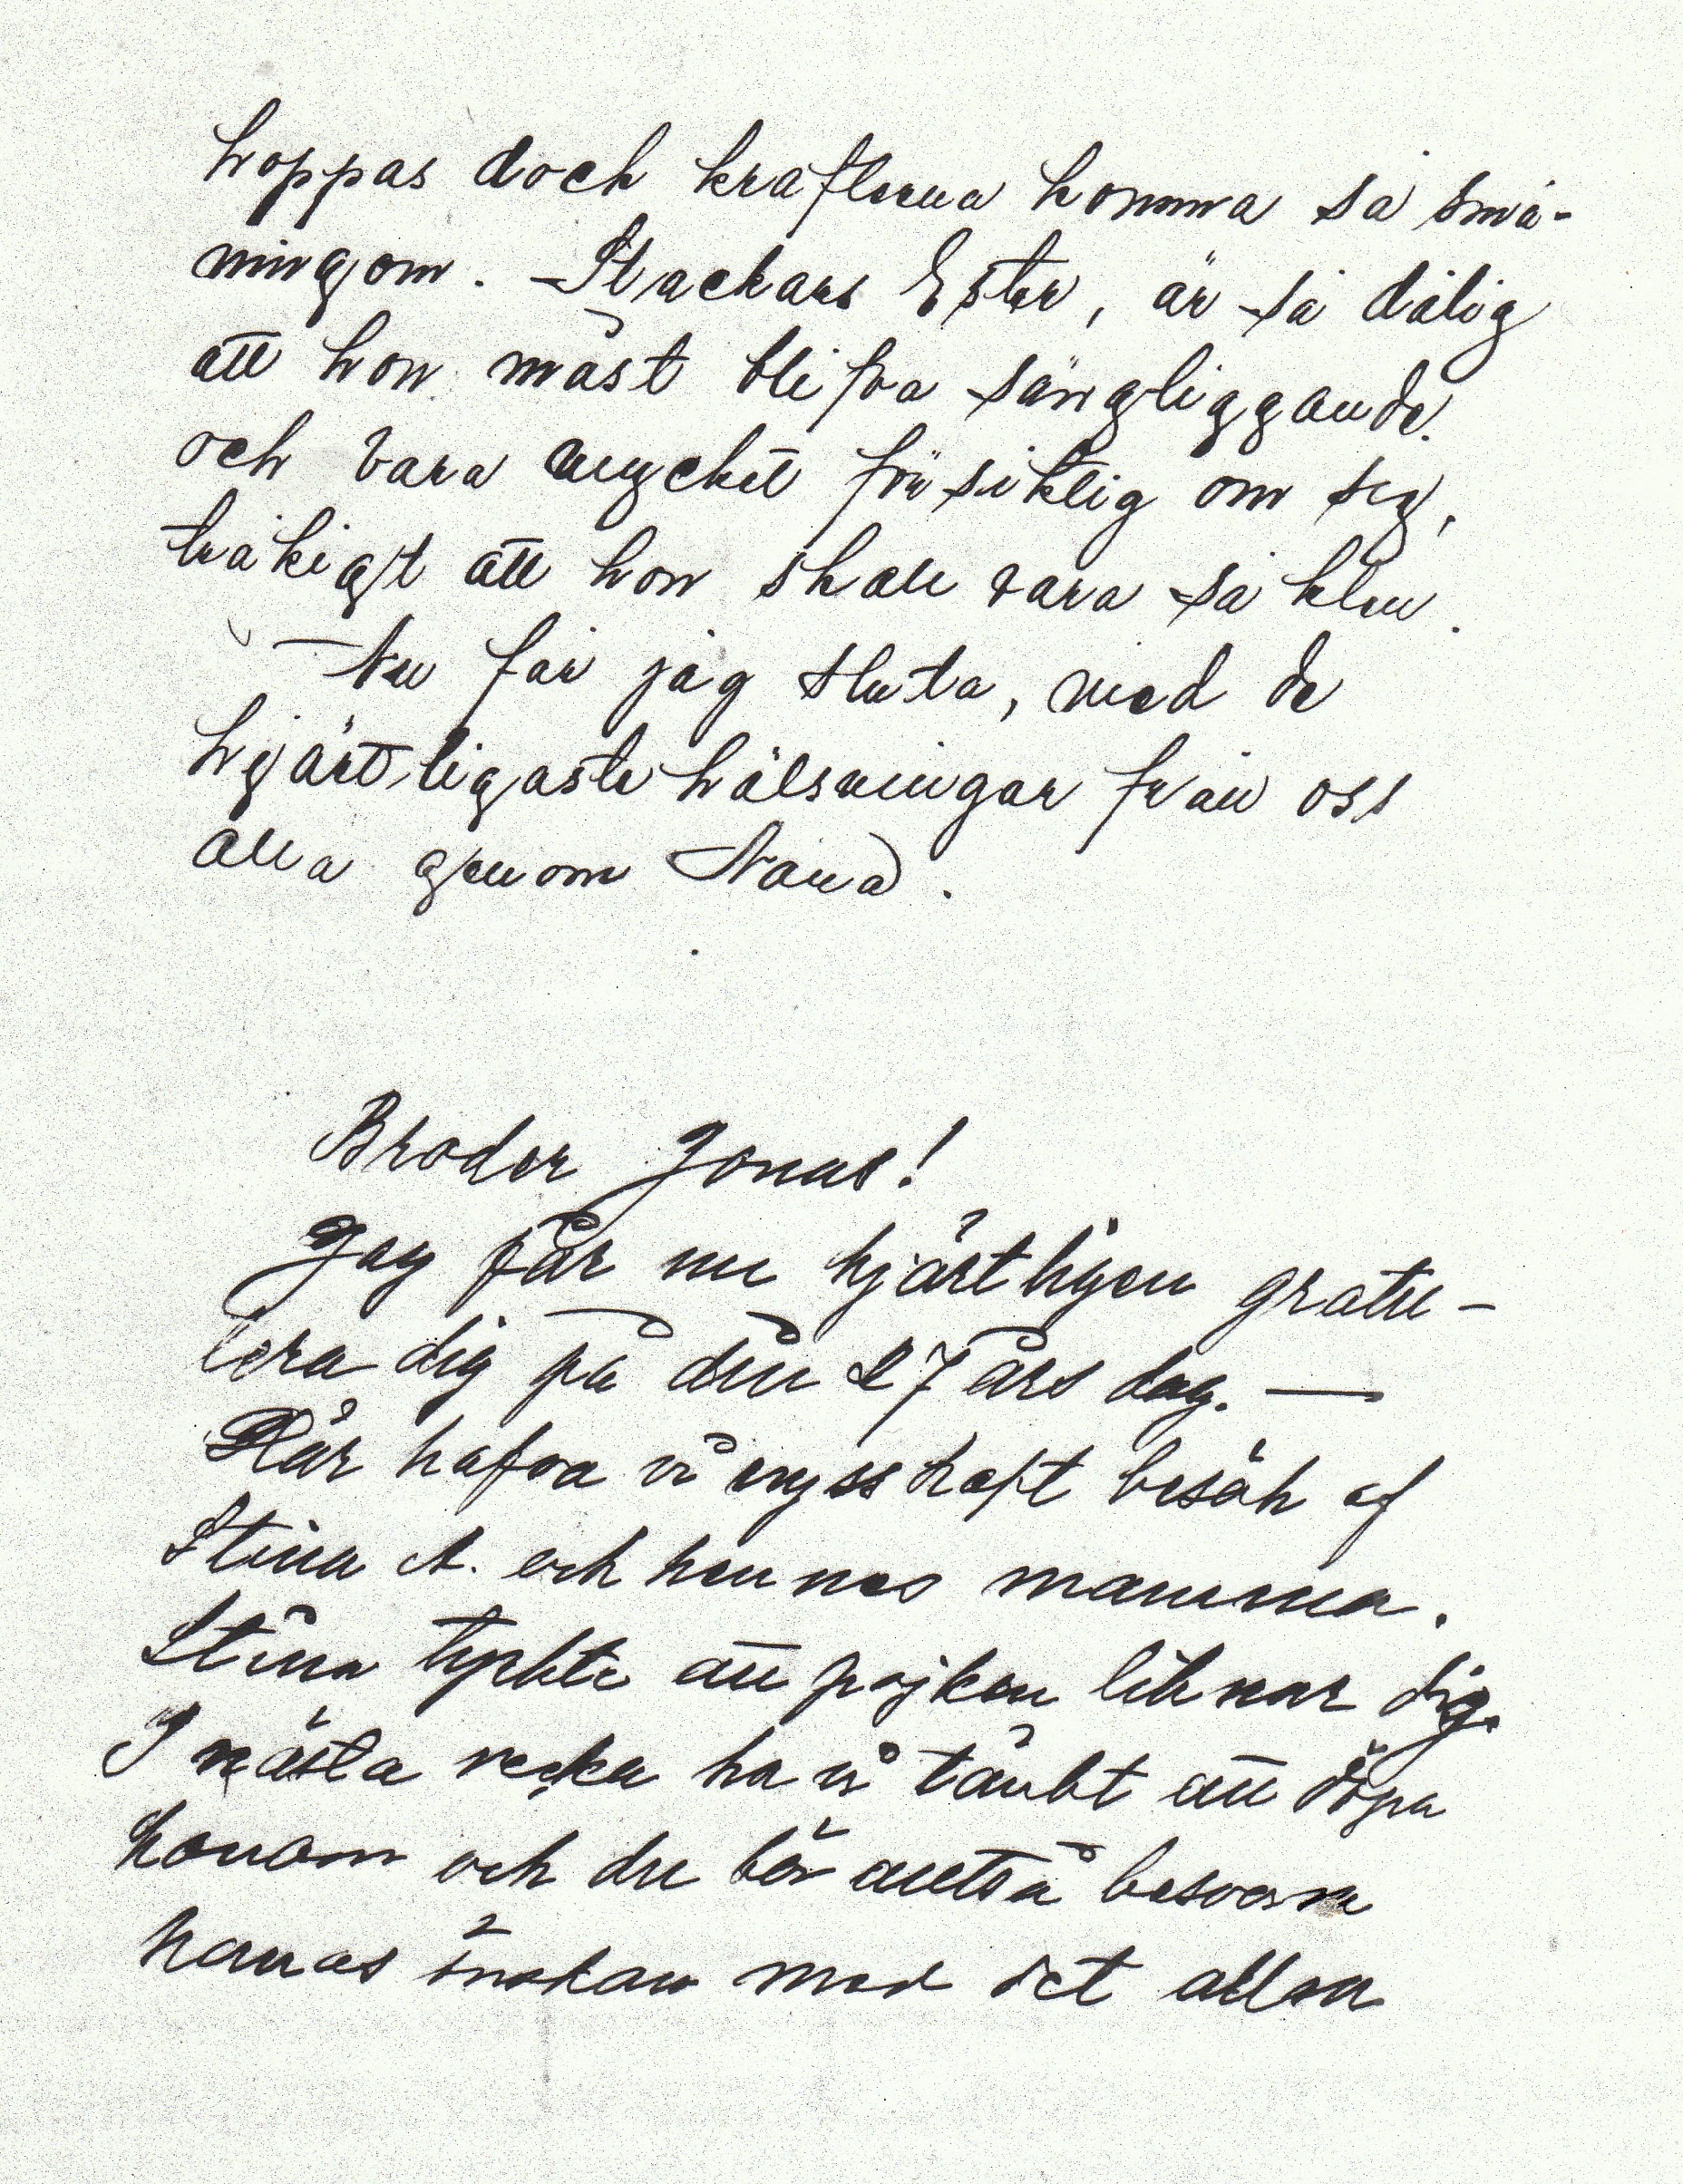 hoppas dock krafterna komma så små-
ningom. Stackars Ester, är så dålig
att hon måst blifva sängliggande.
och vara mycket försiktig om sig,
tråkigt att hon skall vara så klen.
— Nu får jag sluta, med de
hjärtligaste hälsningar från oss
alla genom Nana.
Broder Jonas!
Jag får nu hjärtligen gratu-
lera dig på din 27 års dag. —
Här hafva vi nyss haft besök af
Stina A. och hennes mamma.
Stina tyckte att pojken liknar dig.
I nästa vecka ha vi tänkt att döpa
honom och du bör alltså besvara
hannes önskan med det allra